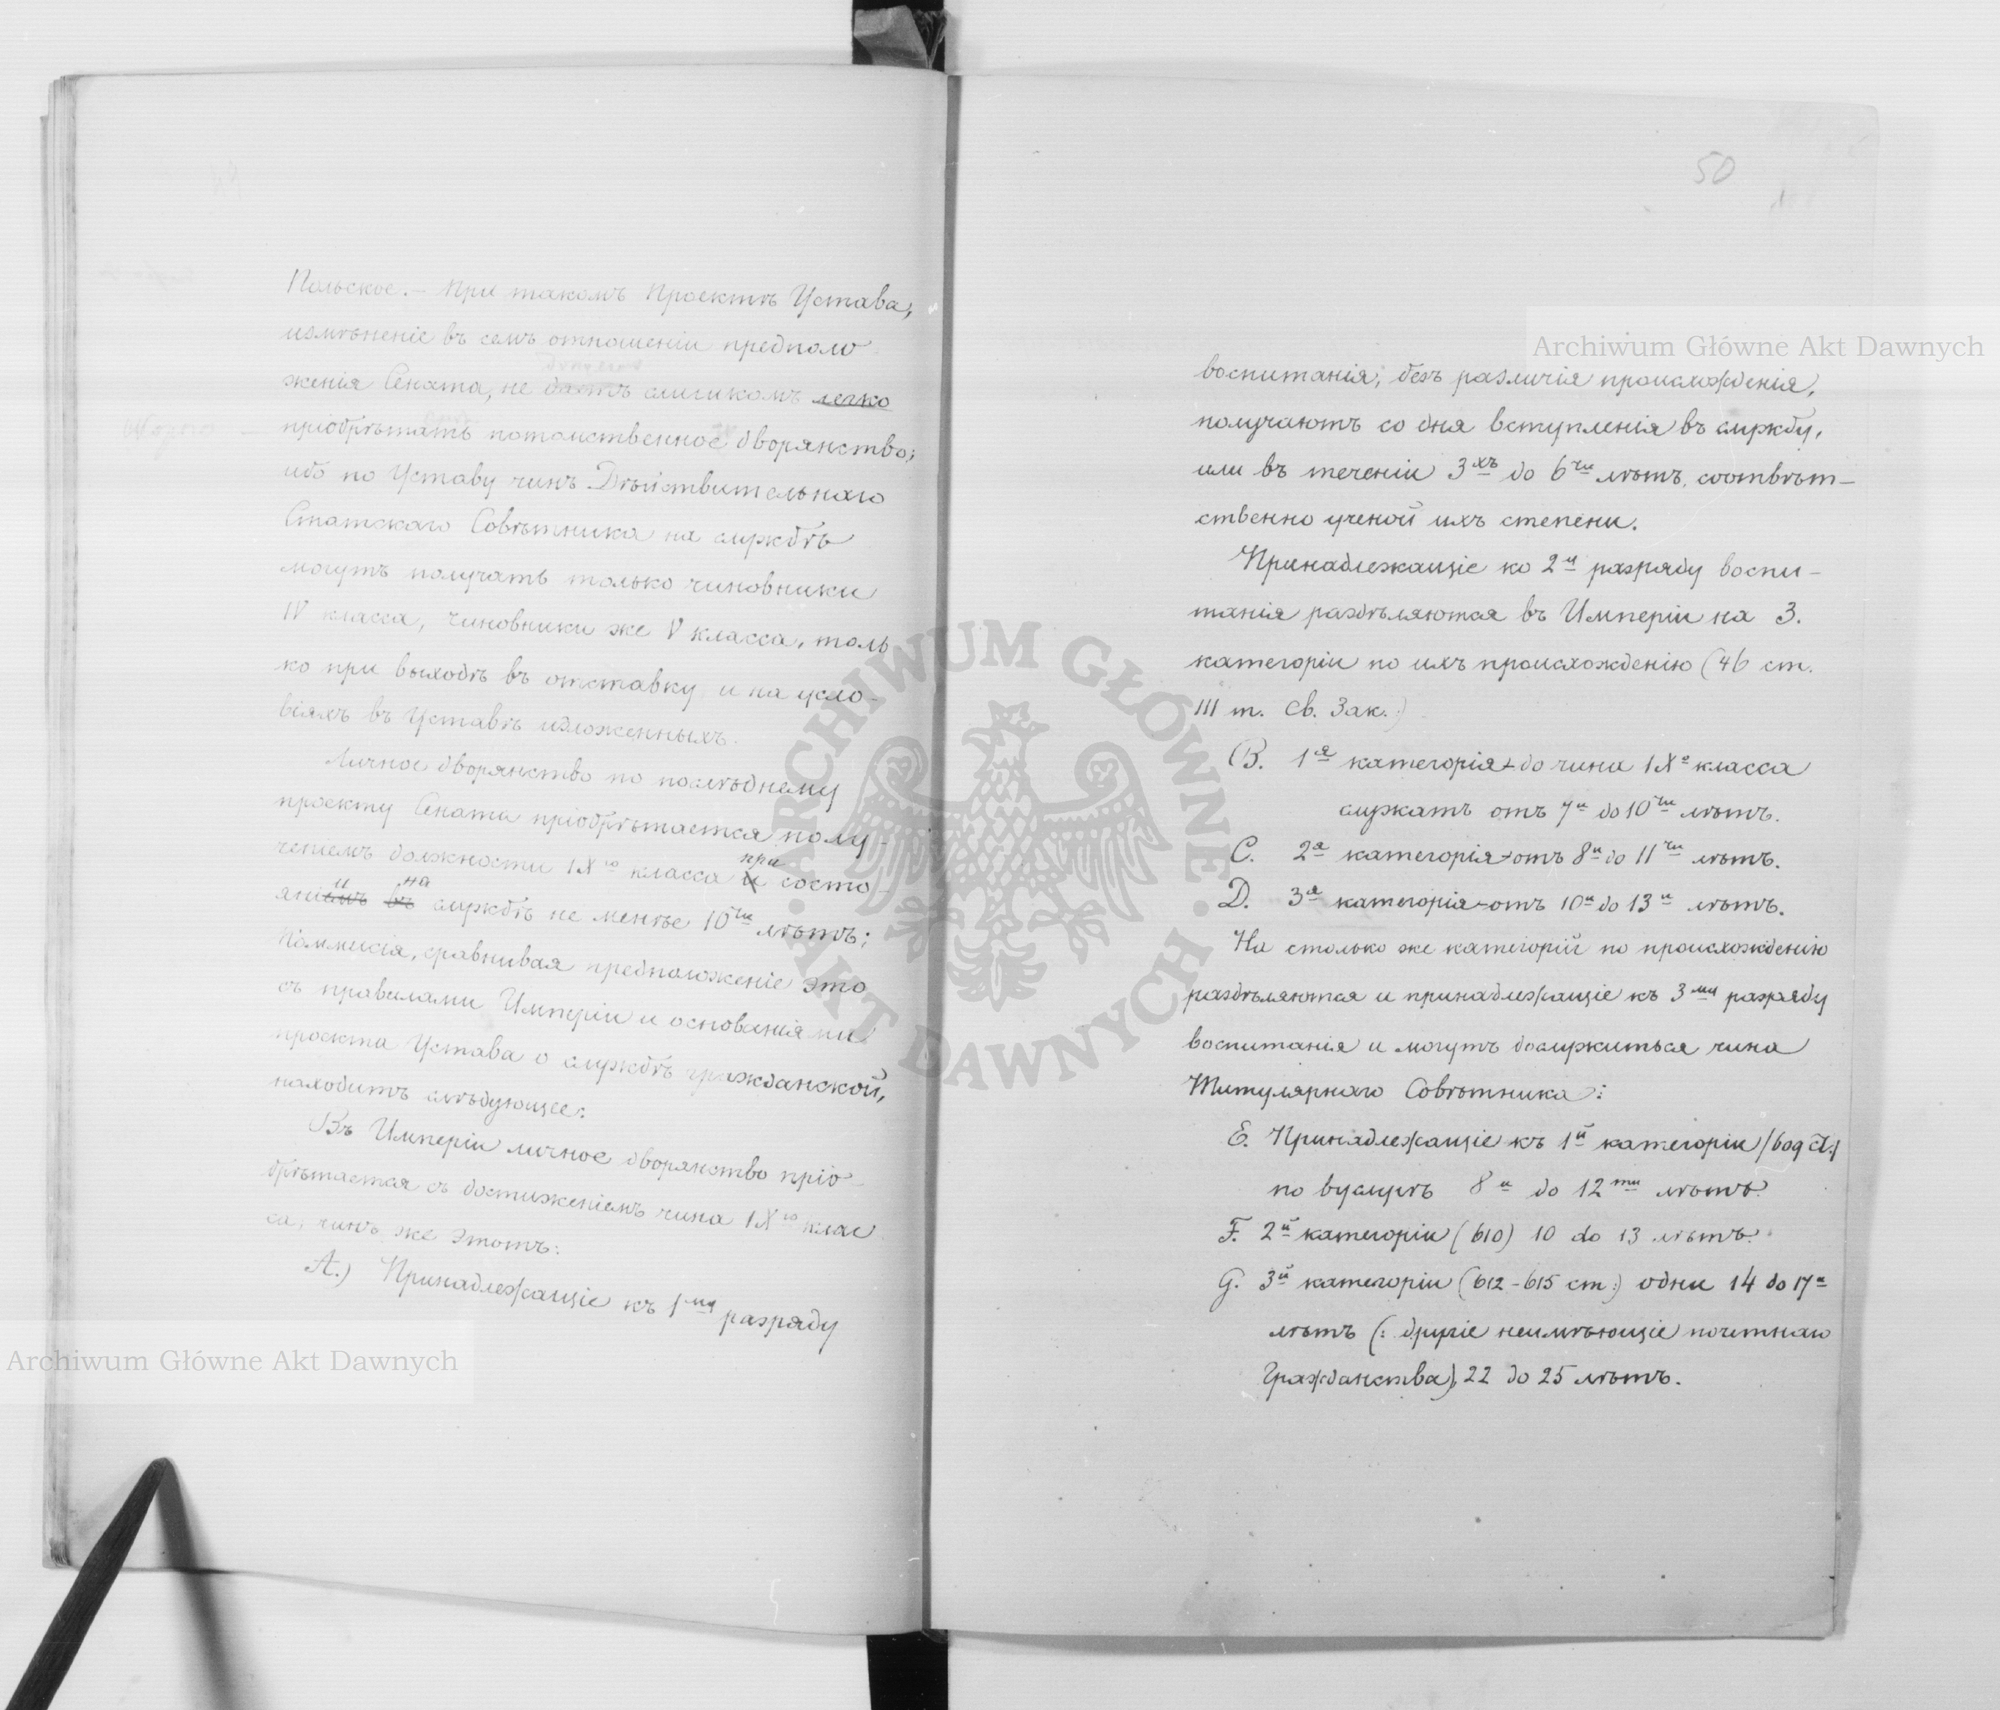 Польское. – При такомъ Проектѣ Устава,
измѣненіе въ семъ отношеніи предполо
женія Сената, не дастъ слишкомъ легко
пріобрѣтать потомственное дворянство;
ибо по Уставу чинъ Дѣйствительнаго
Статскаго Совѣтника на службѣ
могутъ получать только чиновники
IV класса, чиновники же V класса, толь
ко при выходѣ въ отставку и на усло-
віяхъ въ Уставѣ изложенныхъ.
Личное дворянство по послѣднему
проекту Сената пріобрѣтается полу-
ченіемъ должности IXго класса и при состо-
яніи емъ въ на службѣ не менѣе 10ти лѣтъ;
Коммисія, сравнивая предположеніе это
съ правилами Имперіи и основаніями
проекта Устава о службѣ гражданской,
находитъ слѣдующее:
Въ Имперіи личное дворянство пріо-
брѣтается съ достиженіемъ чина IXго клас
са, чинъ же этотъ:
А.) Принадлежащіе къ 1му разряду
50
воспитанія, безъ различія происхожденія,
получаютъ со дня вступленія въ службу,
или въ теченіи 3хъ до 6ти лѣтъ, соотвѣт-
ственно ученой ихъ степени.
Принадлежащіе ко 2й разряду воспи-
танія раздѣляются въ Имперіи на 3.
категоріи по ихъ происхожденію (46 ст.
III т. Св. Зак.)
B. 1я категорія – до чина IXо класса
служатъ отъ 7и до 10ти лѣтъ.
C. 2я категорія – отъ 8и до 11ти лѣтъ.
D. 3я категорія – отъ 10и до 13и лѣтъ.
На столько же категорій по происхожденію
раздѣляются и принадлежащіе къ 3му разряду
воспитанія и могутъ дослужиться чина
Титулярнаго Совѣтника:
E. Принадлежащіе къ 1й категоріи /609 ст./
по выслугѣ 8и до 12ти лѣтъ.
F. 2й категоріи (610) 10 до 13 лѣтъ.
G. 3й категоріи (612-615 ст:) одни 14 до 17и
лѣтъ (: другіе неимѣющіе почетнаго
Гражданства), 22 до 25 лѣтъ.
Archiwum Główne Akt Dawnych
Archiwum Główne Akt Dawnych
ARCHIWUM GŁÓWNE
AKT DAWNYCH